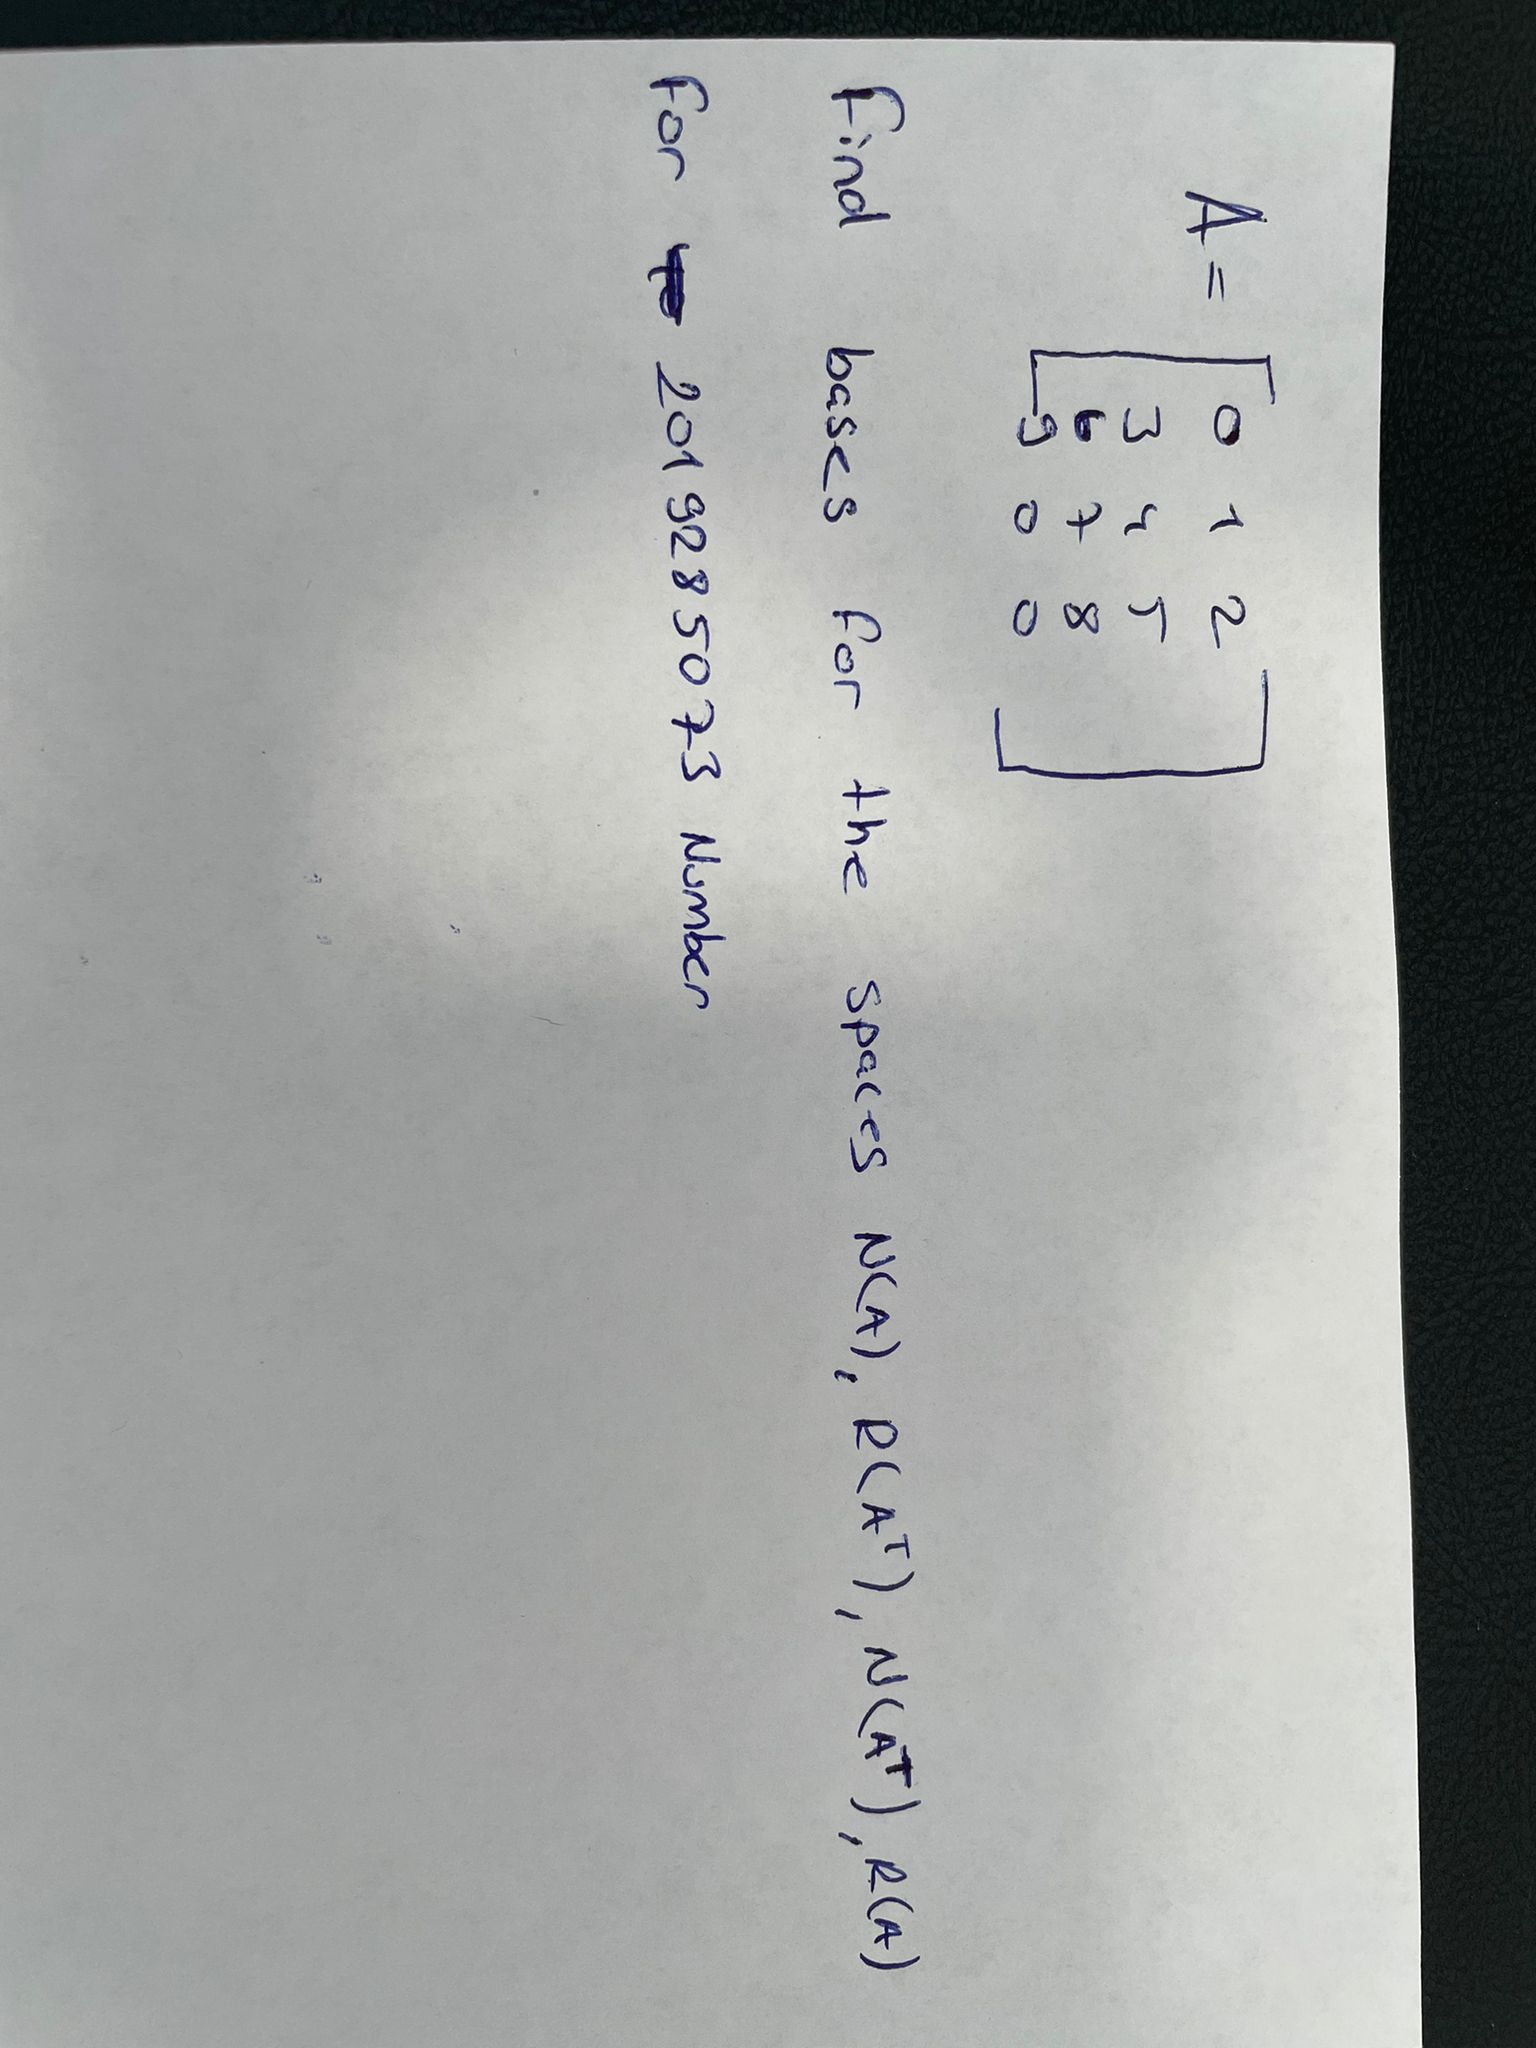 A = [ 0 1 2
3 4 5
6 7 8
9 0 0 ]
Find bases for the spaces N(A), R(Aᵀ), N(Aᵀ), R(A)
For 2019285073 Number